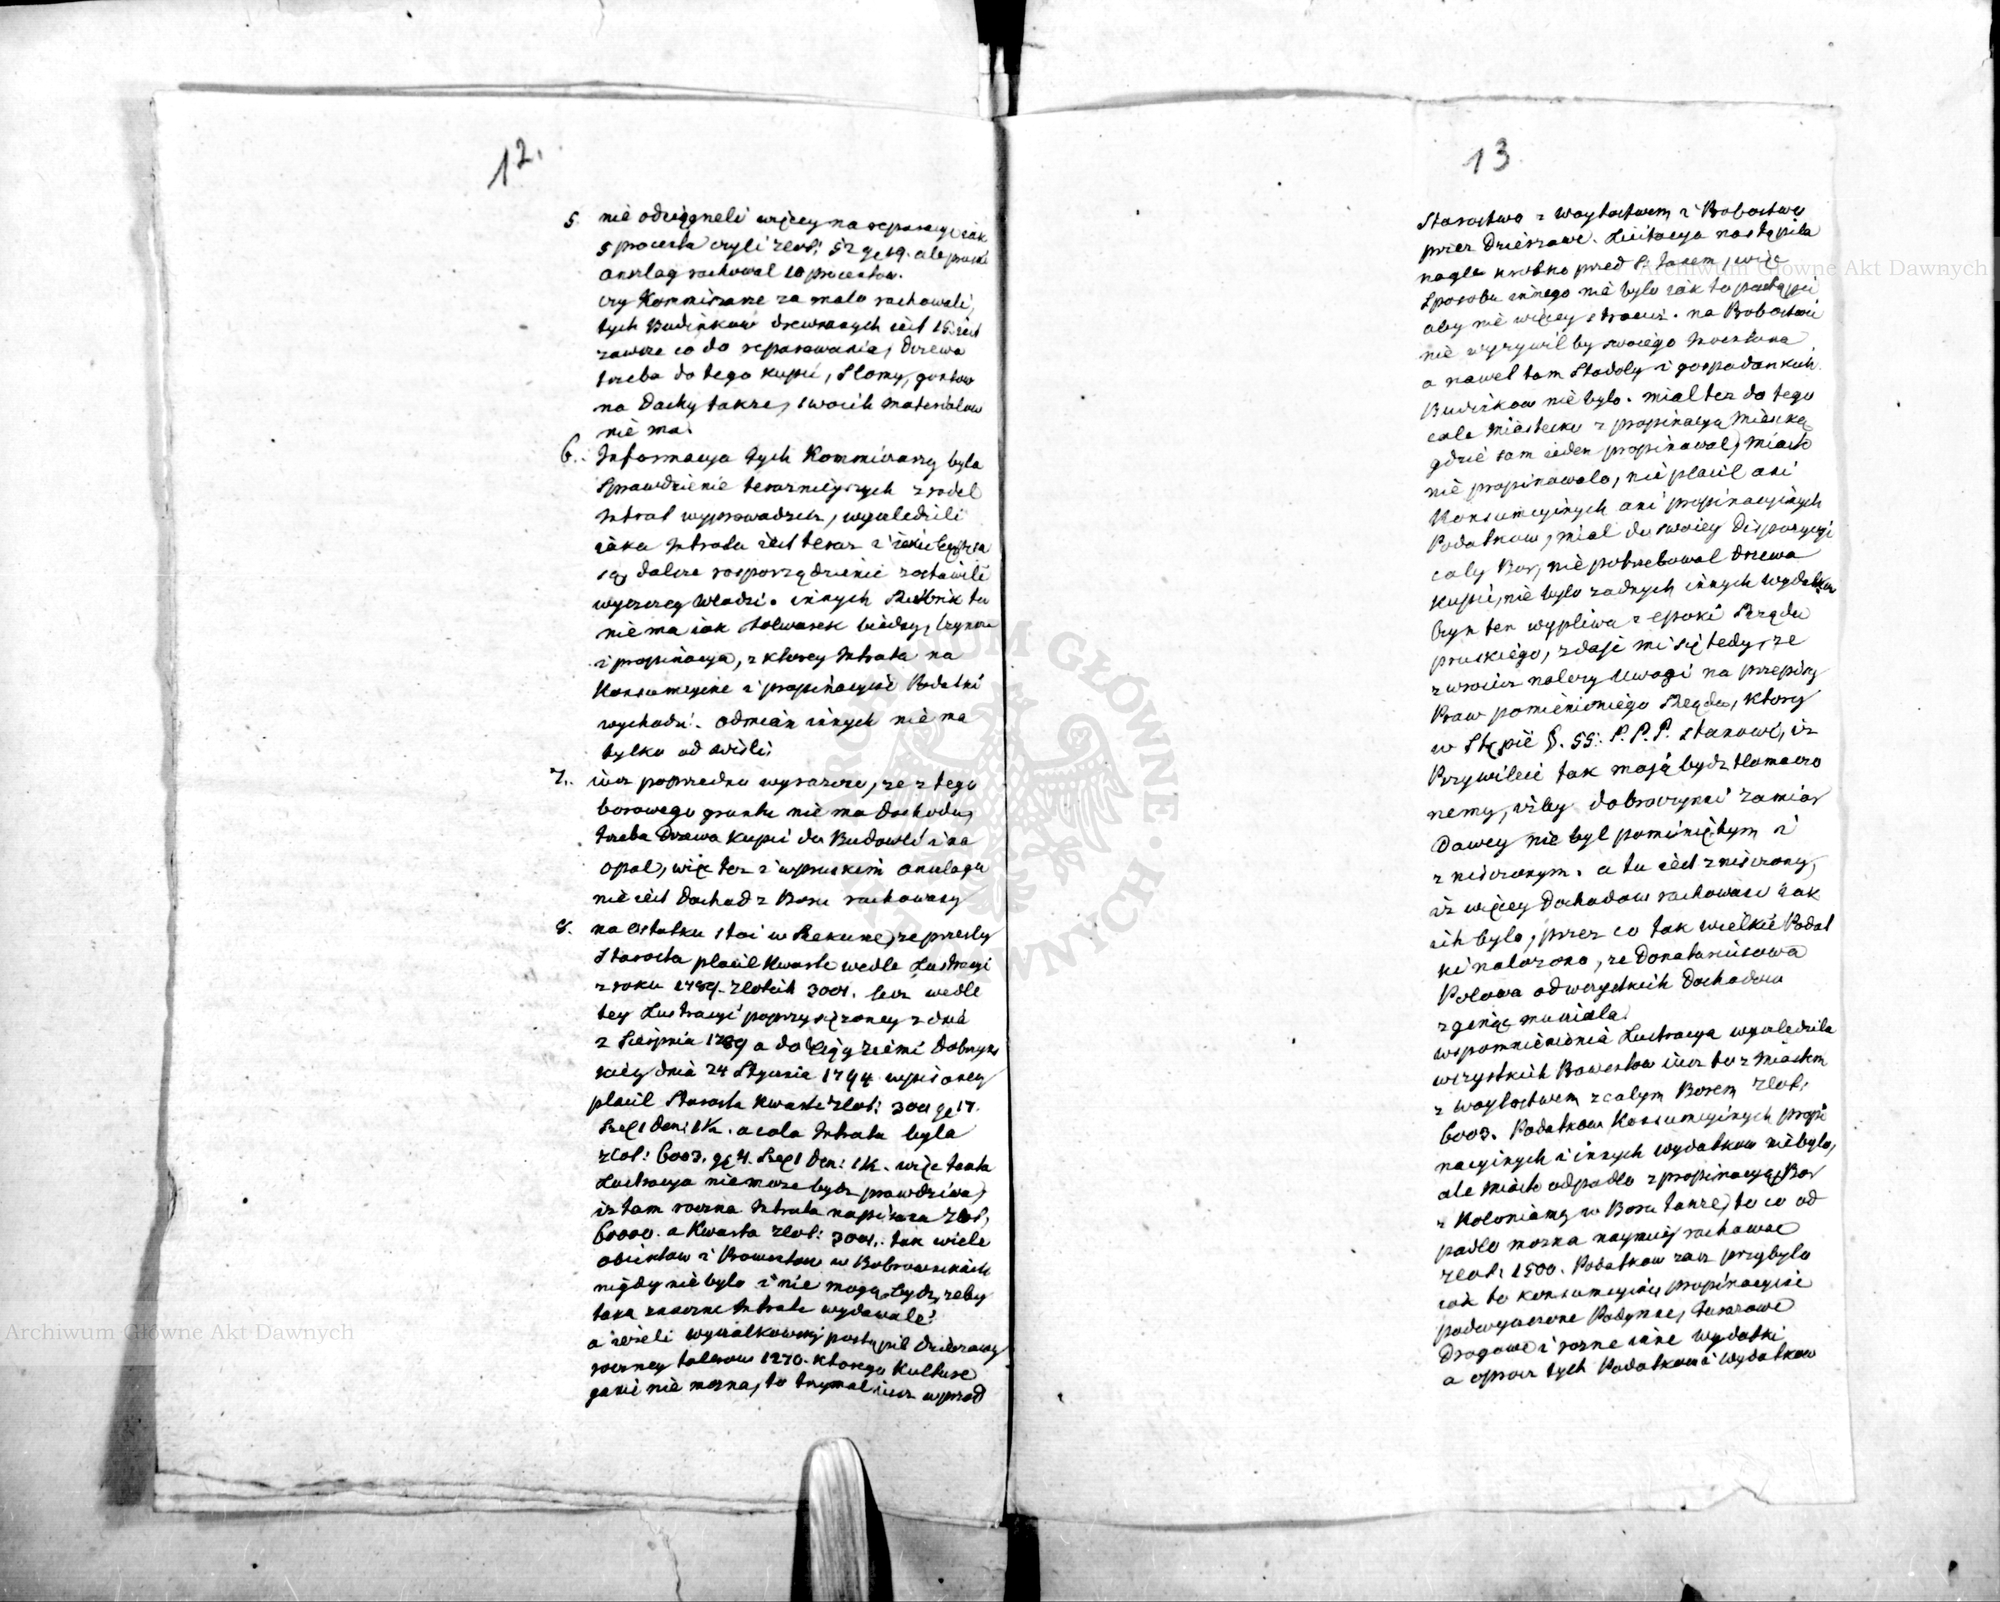 12.
5. nie odciągneli więcey na reparacyi iak
5 procenta czyli zlot: 52 gr 19. ale pruski
anszlag rachowal 10 procentow.
czy Kommissarze za malo rachowali,
tych Budinkow drewnanych iest 15. iest
zawsze co do reparowania, drzewa
trzeba do tego kupić, Slomy, gontow
na Dachy takze, swoich materialow
nie ma.
6. Informacya tych Kommissarzy byla
Sprawdzenie teraznieyszych zrodel
Intrat wyprowadzić, wysledzili
iaka Intrata iest teraz i
są, dalsze rosporządzenie zostawili
wyzszey Wladzi. innych Rubrik tu
nie ma iak folwarek biedny, Czynsze
i propinacya, z ktorey Intrata na
Konsumcyine i propinacyine Podatki
wychodzi. odmian innych nie ma
tylko od wisli.
7. iuz poprzednio wyrazono, ze z tego
borowego gruntu nie ma dochodu,
trzeba Drzewa kupić do Budowli i na
opal, więc tez i w pruskim anszlagu
nie iest Dochod z Boru rachowany
8. na ostatku stoi w Rekursie, ze przeszly
Starosta placil Kwarte wedle Lustracyi
z roku 1789. zlotich 3001. lecz wedle
tey Lustracyi poprzysięzoney z dnia
2 Sierpnia 1789 a do Xiąg ziemi Dobrzyn
skiey dnia 24 Stycznia 1794 wpisaney
placil Starosta Kwarte zlot: 300 gr 17.
Szel 1 den: 1½. a cala Intrata byla
zlot: 6003. gr 4. Szel 1 Den: 1½. więc tamta
Lustracya nie moze bydz prawdziwa,
iz tam roczna Intrata napisana zlot:
60000. a Kwarta zlot: 3001. tak wiele
obiektow i Prowentow w Bobrownikach
nigdy nie bylo i nie mogą bydz, zeby
taką znaczne Intrate wydawali.
a iezeli wyzialkowski postąpil Dzierzawy
roczney talerow 1270. ktorego Kulture
ganić nie mozna, to trzymal iuz wprzod
13
Starostwo z Woytostwem i Probostwo
przez Dzierzawe. Licitacya nastąpila
nagle krotko przed S. Janem, więc
Sposobu innego nie bylo iak to postąpić
aby nie więcey stracić. na Probostwie
nie wyzywil by swoiego
a nawet tam Stodoly i gospodarskich
Budinkow nie bylo. mial tez do tego
cale Miasteczko z propinacyą Mieską
gdzie sam ieden propinowal, Miasto
nie propinowalo, nie placil ani
Konsumcyinych ani propinacyinych
Podatkow, mial do swoiey Dispozycyi
caly Bor, nie potrzebowal drzewa
kupić, nie bylo zadnych innych wydatkow
Czyn ten wypliwa z epoki Rządu
pruskiego, zdaje mi się tedy, ze
zwrocić nalezy Uwagi na przepisy
Praw pomienionego Rządu, ktory
w Stępie §. 55: P. P. P. stanowi, iz
Przywilei tak maią bydz tlomaczo
nemy, izby dobroczynni zamiar
Dawcy nie byl pominiętym i
zniszczonym. a tu iest zniszczony,
iz więcey Dochodow rachowano iak
ich bylo, przez co tak wielkie Podat
ki nalozono, ze Donatariuszowa
Polowa od wszystkich Dochodow
zginąc musiala.
wspomnienionia Lustracya wysledzila
wszystkich Prowentow iuz to z Miastem
z Woytostwem z calym Borem zlot:
6003. Podatkow Konsumcyinych propi
nacyinych i inszych wydatkow nie bylo,
ale Miasto odpadlo z propinacyą, Bor
z Koloniamy w Boru takze, to co od
padlo mozna naymniey rachować
zlot: 1500. Podatkow zas przybylo
iak to konsumcyine propinacyine
podwyzszone Podymne, Szarwark
Drogowe i rozne inne wydatki
a oprocz tych Podatkow i Wydatkow
Archiwum Główne Akt Dawnych
Archiwum Główne Akt Dawnych
ARCHIWUM GŁÓWNE AKT DAWNYCH